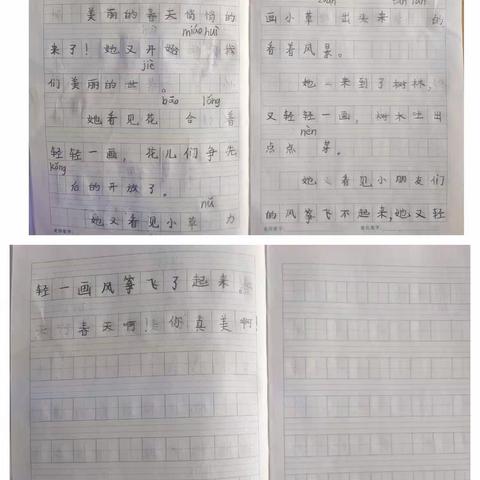 美丽的春天悄悄的
miáo huì
来了！她又开始 我
jiè
们美丽的世 。
bāo lǒng
她看见花 合着
轻轻一画，花儿们争先
kǒng
后的开放了。
nǔ
她又看见小草 力
画小草 出头来 的
看着风景。
她一来到了树林，
又轻轻一画，树木吐出
nèn
点点 芽。
她又看见小朋友们
的风筝飞不起来，她又轻
轻一画风筝飞了起来。
春天啊！你真美啊！